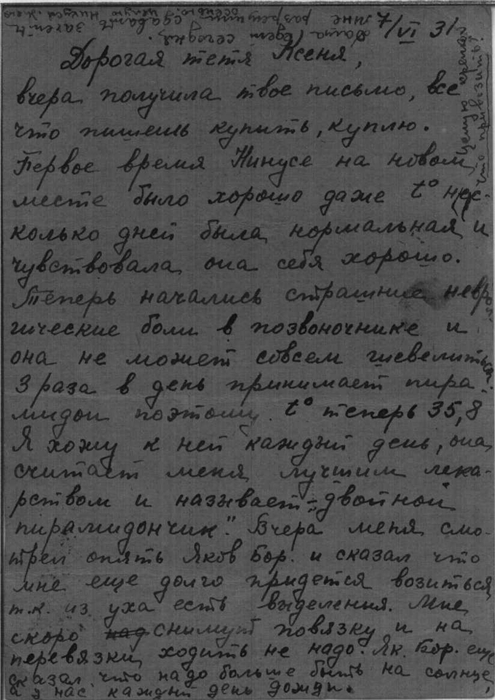 7/VI 31
Дорогая тетя Ксеня,
вчера получила твое письмо, все
что пишешь купить, куплю.
Первое время Нинусе на новом
месте было хорошо даже t° нес-
колько дней была нормальная и
чувствовала она себя хорошо.
Теперь начались страшные невр
гические боли в позвоночнике и
она не может совсем шевелиться
3 раза в день принимает пира-
мидон поэтому t° теперь 35,8
Я хожу к ней каждый день, она
считает меня лучшим лека-
рством и называет „двойной
пирамидончик". Вчера меня смо-
трел опять Яков Бор. и сказал что
мне еще долго придется возиться
т.к. из уха есть выделения. Мне
скоро над снимут повязку и на
перевязки ходить не надо. Як. Бор. еще
сказал, что надо больше быть на солнце
а у нас каждый день дожди.
Целую крепко
что привозить?
сегодня.
мне разрешили
сдавать зачеты